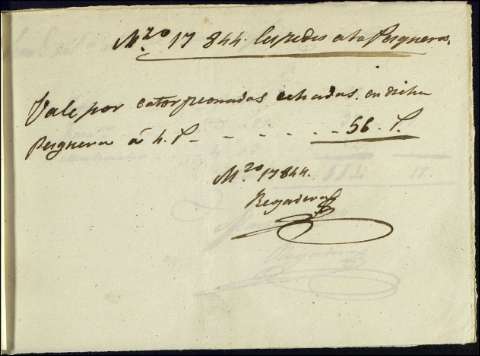 Mzo 17 844. Cespedes a la Pesquera.
Vale por cator peonadas echadas en dicha
Pesquera á 4. P - - - - - - 56. P.
Mzo 17 844.
Regadera